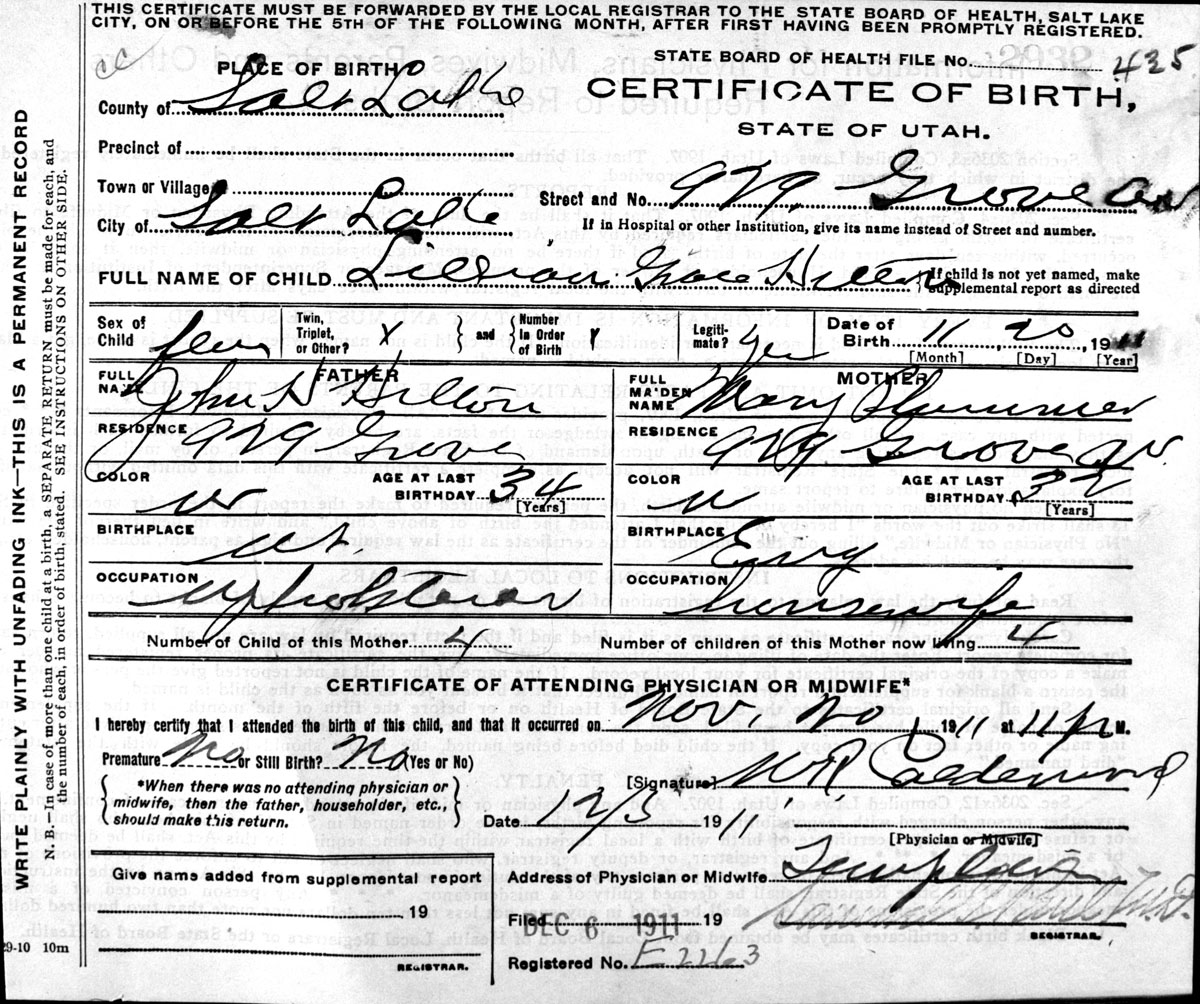 THIS CERTIFICATE MUST BE FORWARDED BY THE LOCAL REGISTRAR TO THE STATE BOARD OF HEALTH, SALT LAKE
CITY, ON OR BEFORE THE 5TH OF THE FOLLOWING MONTH, AFTER FIRST HAVING BEEN PROMPTLY REGISTERED.
WRITE PLAINLY WITH UNFADING INK—THIS IS A PERMANENT RECORD
N. B.—In case of more than one child at a birth, a SEPARATE RETURN must be made for each, and
the number of each, in order of birth, stated. SEE INSTRUCTIONS ON OTHER SIDE.
STATE BOARD OF HEALTH FILE No. 425
PLACE OF BIRTH
CERTIFICATE OF BIRTH,
County of Salt Lake
STATE OF UTAH.
Precinct of
Town or Village
Street and No. 979 Grove av
City of Salt Lake
If in Hospital or other Institution, give its name instead of Street and number.
FULL NAME OF CHILD Lillian Grace Hillon
If child is not yet named, make
supplemental report as directed
Sex of Child fem
Twin, Triplet, or Other? X
and Number in Order of Birth X
Legiti-mate? yes
Date of Birth 11 20, 1911
[Month] [Day] [Year]
FATHER
FULL NAME John H Hillon
RESIDENCE 979 Grove
COLOR w
AGE AT LAST BIRTHDAY 34
[Years]
BIRTHPLACE Ut.
OCCUPATION
MOTHER
FULL MAIDEN NAME Mary Plummer
RESIDENCE 979 Grove av.
COLOR w
AGE AT LAST BIRTHDAY 32
[Years]
BIRTHPLACE Eng
OCCUPATION housewife
Number of Child of this Mother 4
Number of children of this Mother now living 4
CERTIFICATE OF ATTENDING PHYSICIAN OR MIDWIFE*
I hereby certify that I attended the birth of this child, and that it occurred on Nov. 20, 1911 at 11 P M.
Premature No or Still Birth? No (Yes or No)
*When there was no attending physician or
midwife, then the father, householder, etc.,
should make this return.
[Signature] W R Calderwood
Date 12/3 1911
[Physician or Midwife]
Give name added from supplemental report
19
REGISTRAR.
Address of Physician or Midwife Templeton
Filed DEC 6 1911 19
REGISTRAR.
Registered No. E2263
29-10 10m